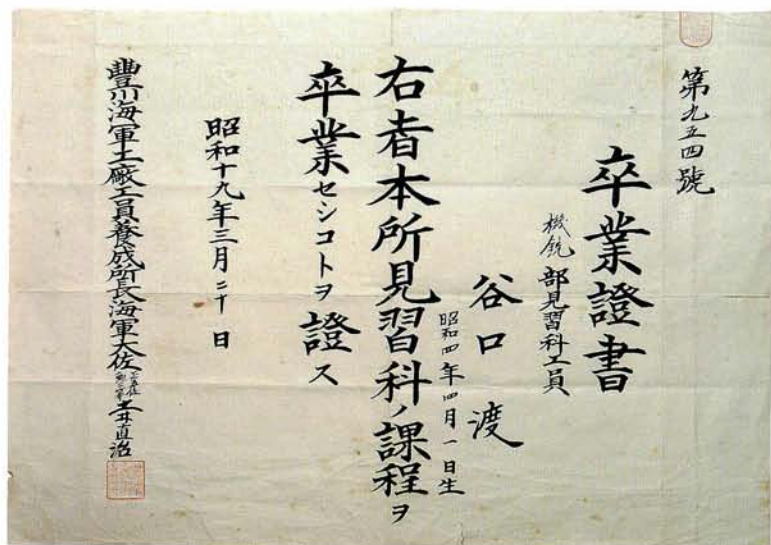 第九五四號
卒業證書
機銃部見習科工員
谷口渡
昭和四年四月一日生
右者本所見習科ノ課程ヲ
卒業セシコトヲ證ス
昭和十九年三月二十日
豐川海軍工廠工員養成所長海軍大佐
井直治